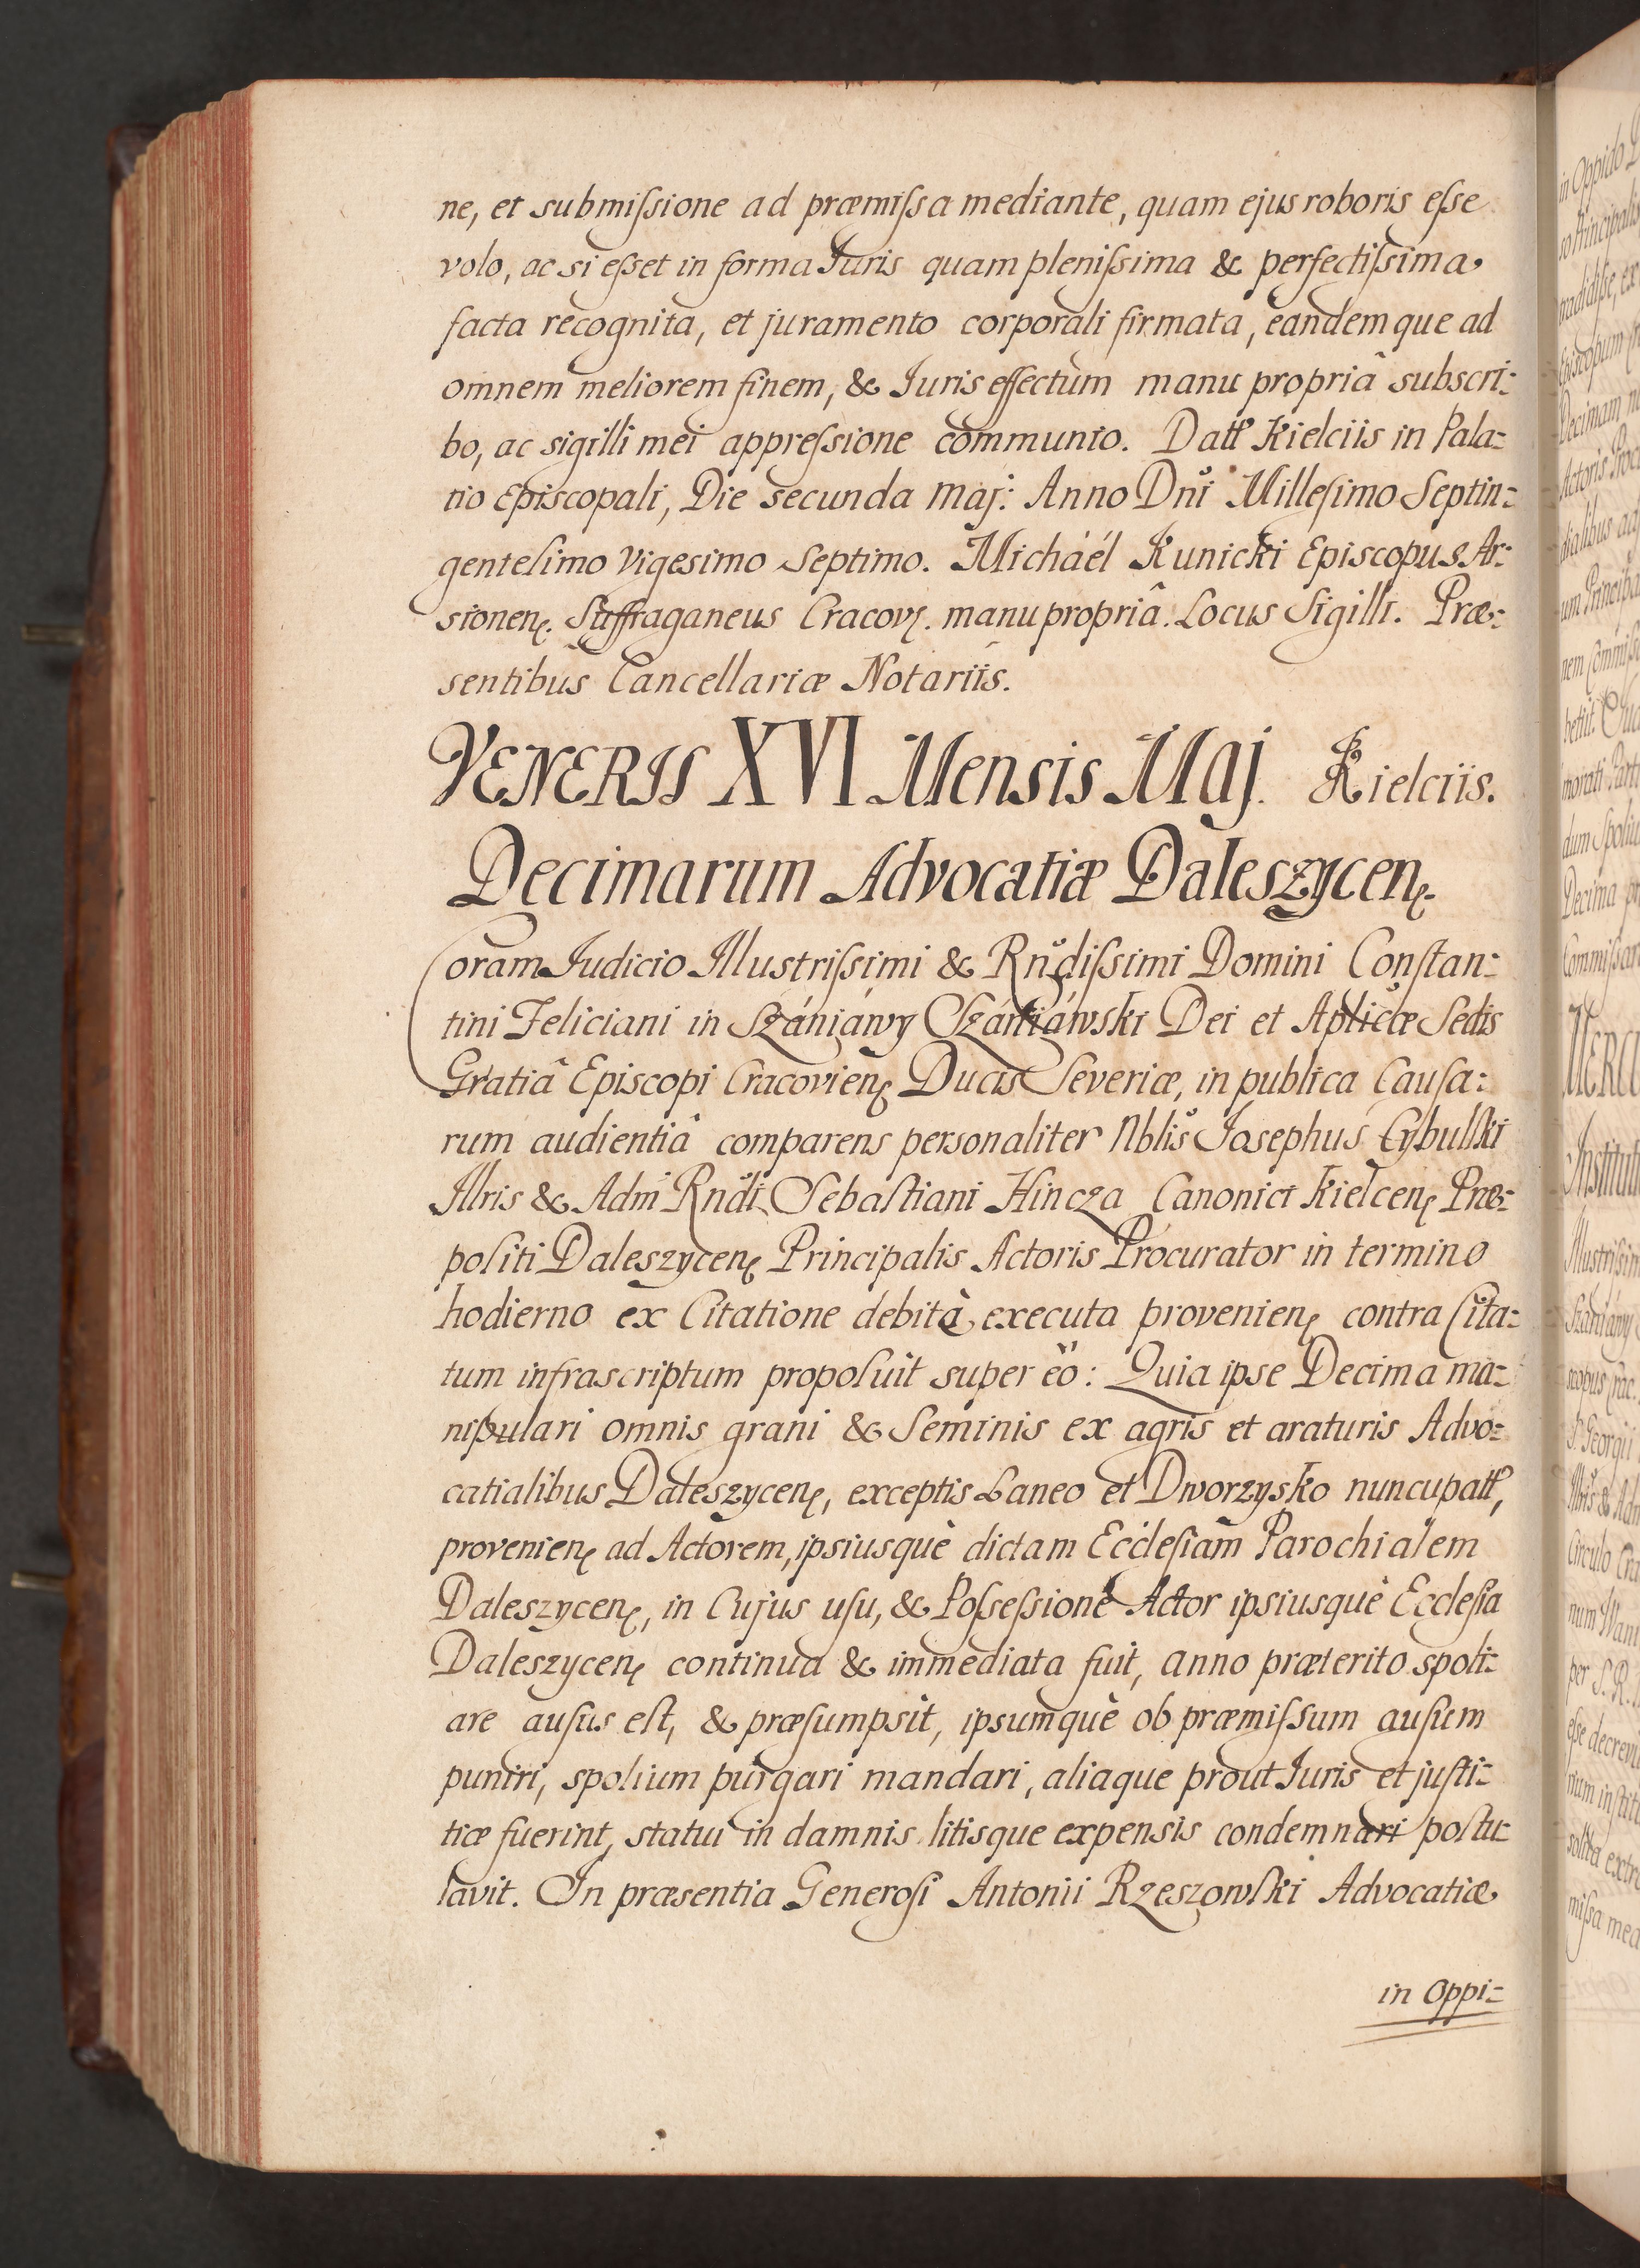 ne, et submiſsione ad præmiſsa mediante, quam ejus roboris eſse
volo, ac si eſset in forma Juris quam pleniſsima & perfectiſsima
facta recognita, et juramento corporali firmata, eandemque ad
omnem meliorem finem, & Juris effectum manu propriâ subscri:
bo, ac sigilli mei appreſsione communio. Datt Kielciis in Pala:
tio Episcopali, Die secunda Maj: Anno Dni Milleſimo Septin:
genteſimo Vigesimo Septimo. Micháél Kunicki Episcopus Ar:
sionenę. Suffraganeus Cracovę. manu propriâ. Locus Sigilli. Præ:
sentibus Cancellariæ Notariis.
VENERIS XVI Mensis Maj. Kielciis.
Decimarum Advocatiæ Daleszycenę.
Coram Judicio Illustriſsimi & Rndiſsimi Domini Conſtan:
tini Feliciani in Szániáwy Szániáwski Dei et Aplicæ Sedis
Gratiâ Episcopi Cracovienę Ducis Severiæ, in publica Cauſa:
rum audientiâ comparens personaliter Nblis Josephus Cybulſki
Illris & Adm Rndi Sebaſtiani Hincza Canonici Kielcenę Præ:
poſiti Daleszycenę Principalis Actoris Procurator in termino
hodierno ex Citatione debità executa provenienę contra Cita:
tum infrascriptum propoſuit super eo: Quia ipse Decima ma:
nipulari omnis grani & Seminis ex agris et araturis Advo:
catialibus Daleszycenę, exceptis Laneo et Dworzysko nuncupatt,
provenienę ad Actorem, ipsiusquè dictam Eccleſiam Parochialem
Daleszycenę, in Cujus uſu, & Poſseſsione Actor ipsiusquè Eccleſia
Daleszycenę continua & immediata fuit, anno præterito spoli:
are auſus eſt, & præsumpsit, ipsumquè ob præmiſsum auſum
puniri, spolium purgari mandari, aliaque prout Juris et juſti:
tiæ fuerint, statui in damnis litisque expensis condemnari poſtu:
lavit. In præsentia Generoſi Antonii Rzeszowſki Advocatiæ
in Oppi: